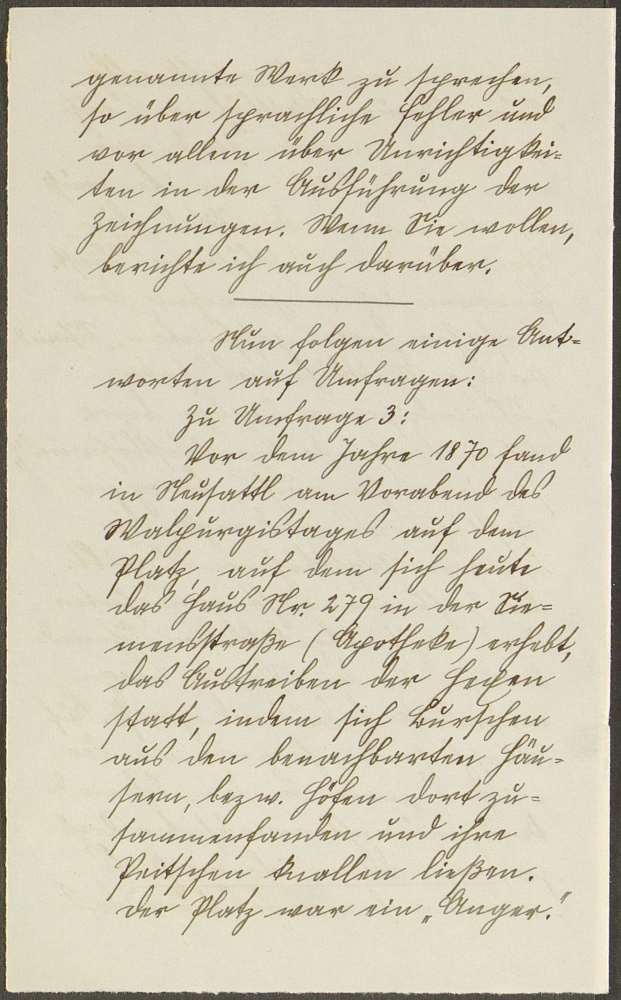 genannte Werk zu sprechen,
so über sprachliche Fehler und
vor allem über Unrichtigkei-
ten in der Ausführung der
Zeichnungen. Wenn Sie wollen,
berichte ich auch darüber.
Nun folgen einige Ant-
worten auf Umfragen:
Zu Umfrage 3:
Vor dem Jahre 1870 fand
in Neusattl am Vorabend des
Walpurgistages auf dem
Platz, auf dem sich heute
das Haus Nr. 279 in der Sie-
mensstraße (Apotheke) erhebt,
das Austreiben der Hexen
statt, indem sich Burschen
aus den benachbarten Häu-
sern, bezw. Höfen dort zu-
sammenfanden und ihre
Peitschen knallen ließen.
Der Platz war ein „Anger."